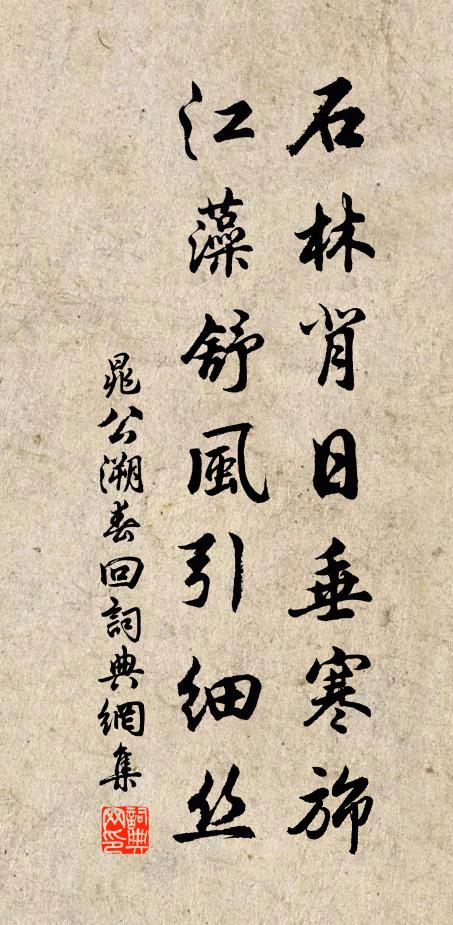 石林背日垂寒旆
江藻舒風引細丝
晁公溯春回詞典網集
詞典网印